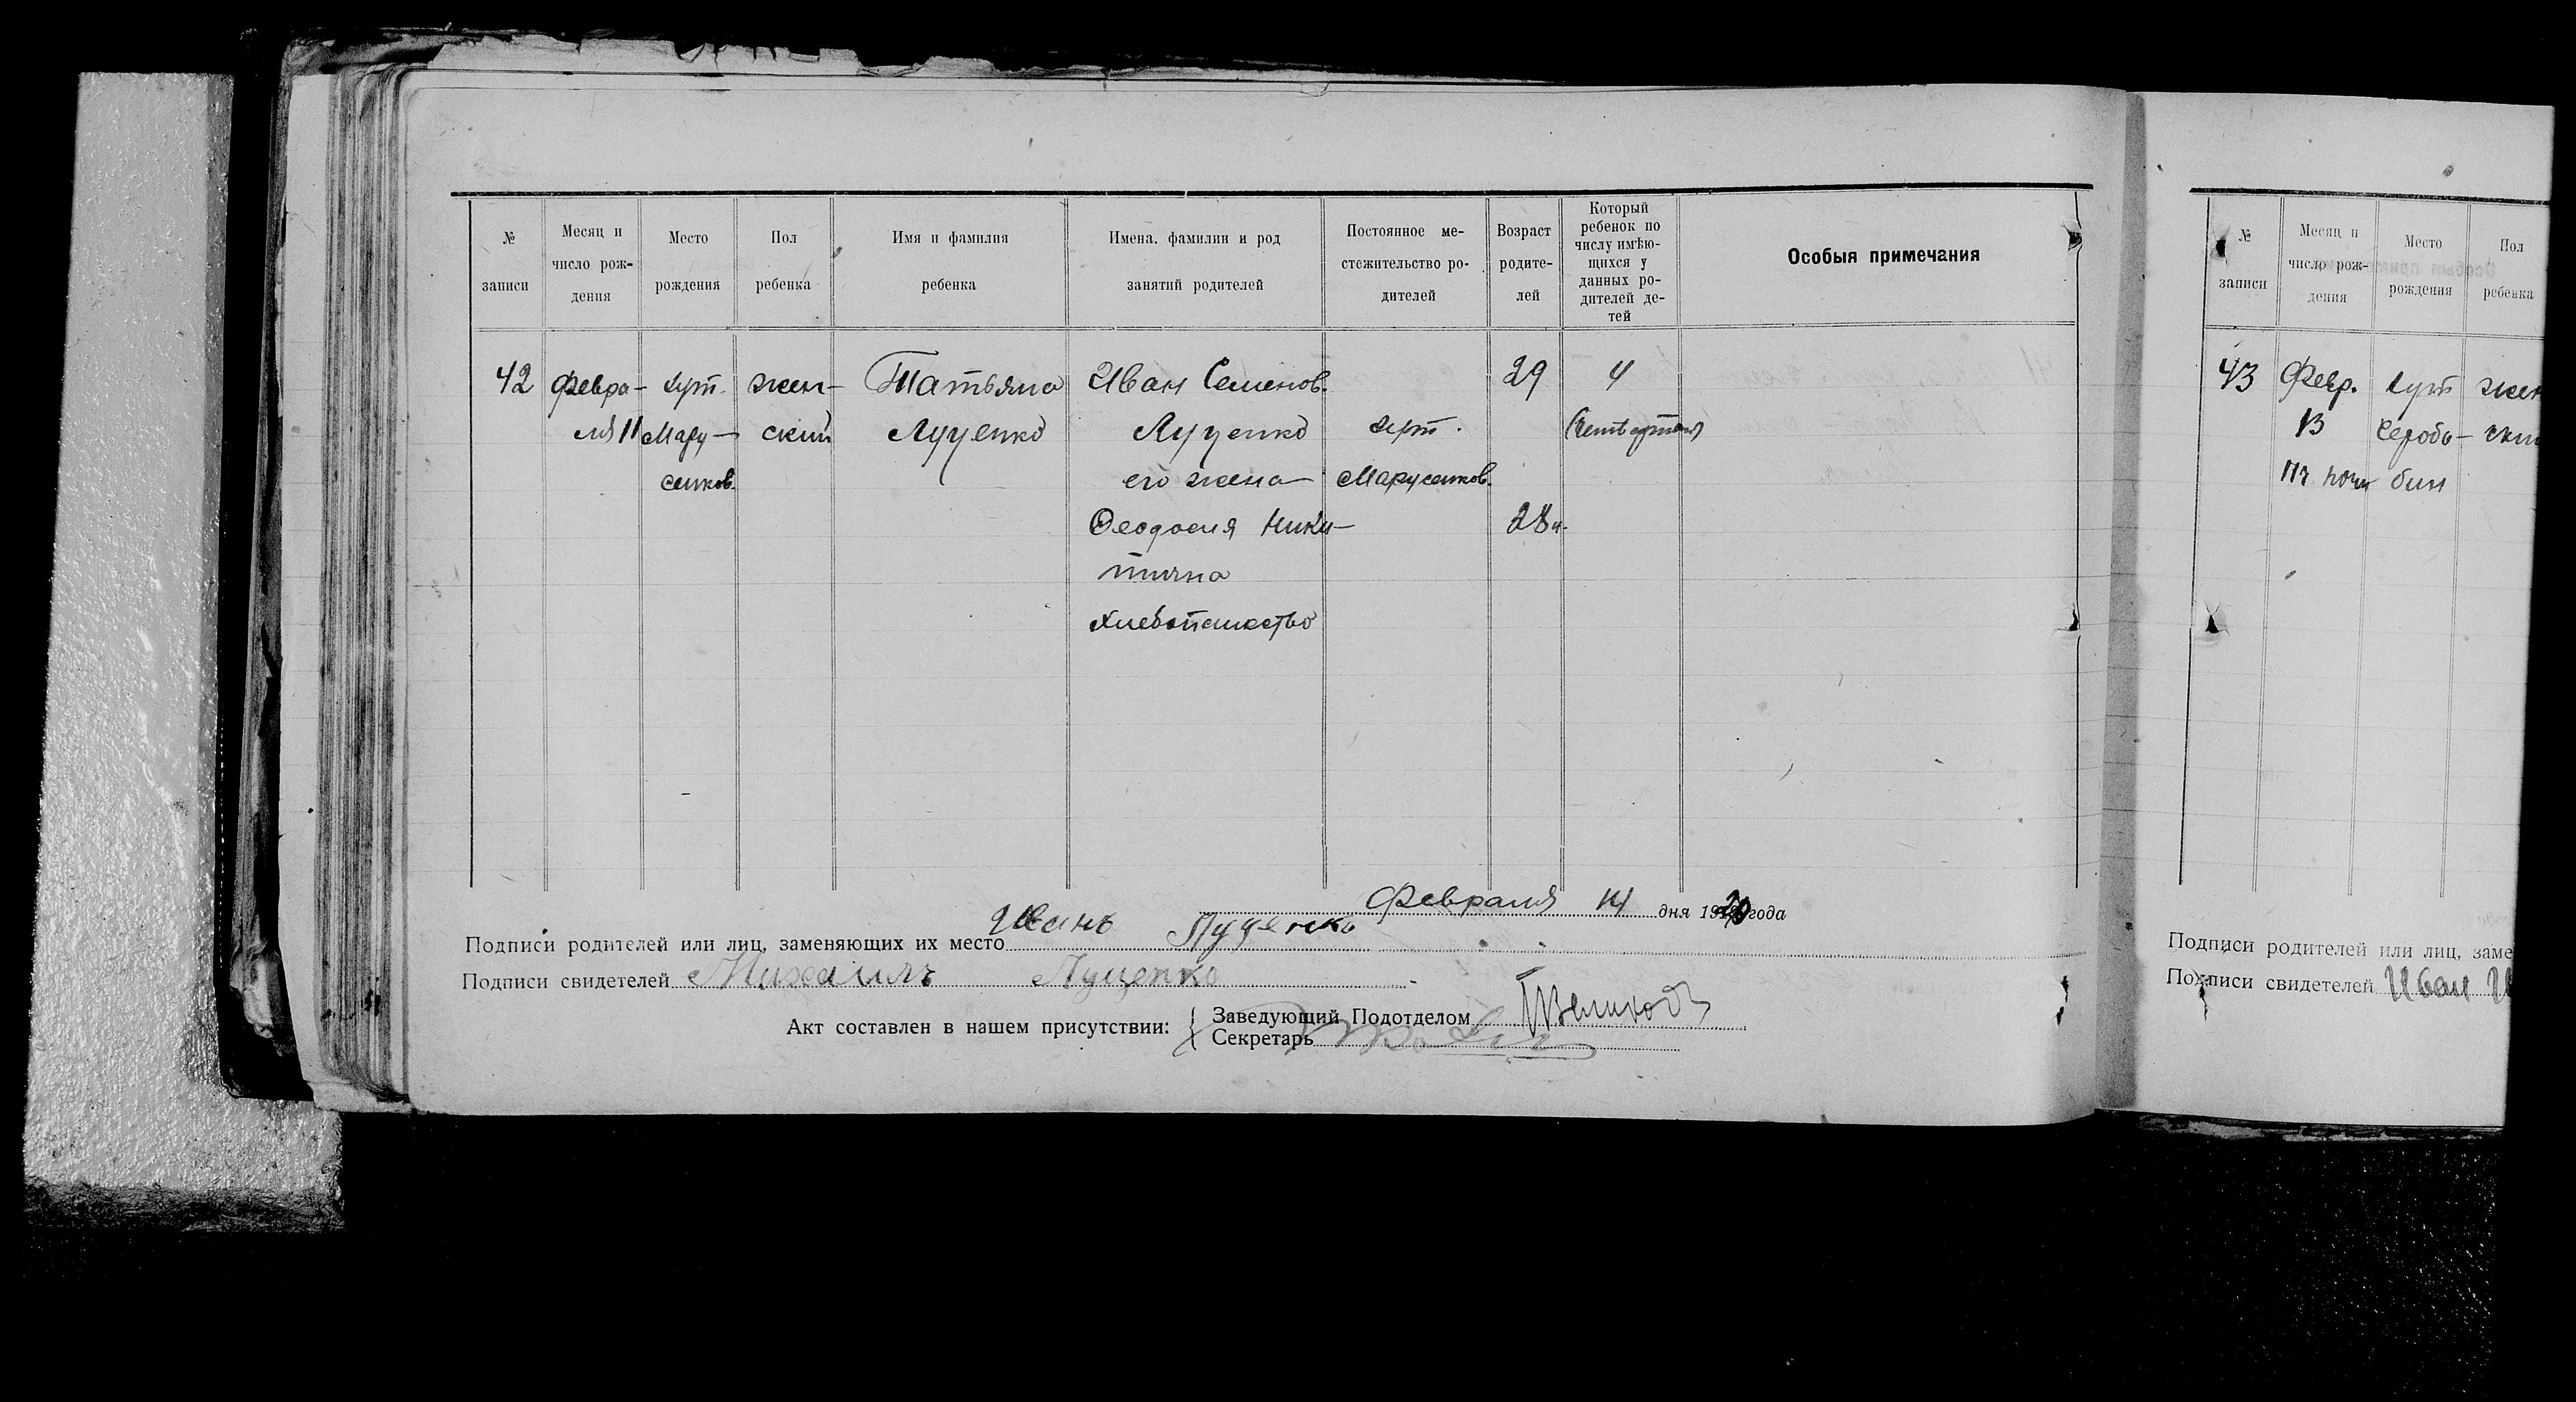 № записи
Месяц и число рождения
Место рождения
Пол ребенка
Имя и фамилия ребенка
Имена, фамилии и род занятий родителей
Постоянное местожительство родителей
Возраст родителей
Который ребенок по числу имѣющихся у данных родителей детей
Особыя примечания
42 Февра- хут. жен- Татьяна Иван Семенов. 29 4
ля 11 Мару- ский Луценко Луценко хут. (Четвертый)
сенков. его жена Марусенков.
Феодосия Ники- 28
тична
Хлебопашество
Февраля 14 дня 1920 года
Подписи родителей или лиц, заменяющих их место Иванъ Луценко
Подписи свидетелей Михаилъ Луценко
Акт составлен в нашем присутствии:
Заведующий Подотделом
Секретарь
№ записи
Месяц и число рождения
Место рождения
Пол ребенка
43 Февр. хут жен
13 Серобо- ски
ночи бин
Подписи родителей или лиц, заме
Подписи свидетелей Иван